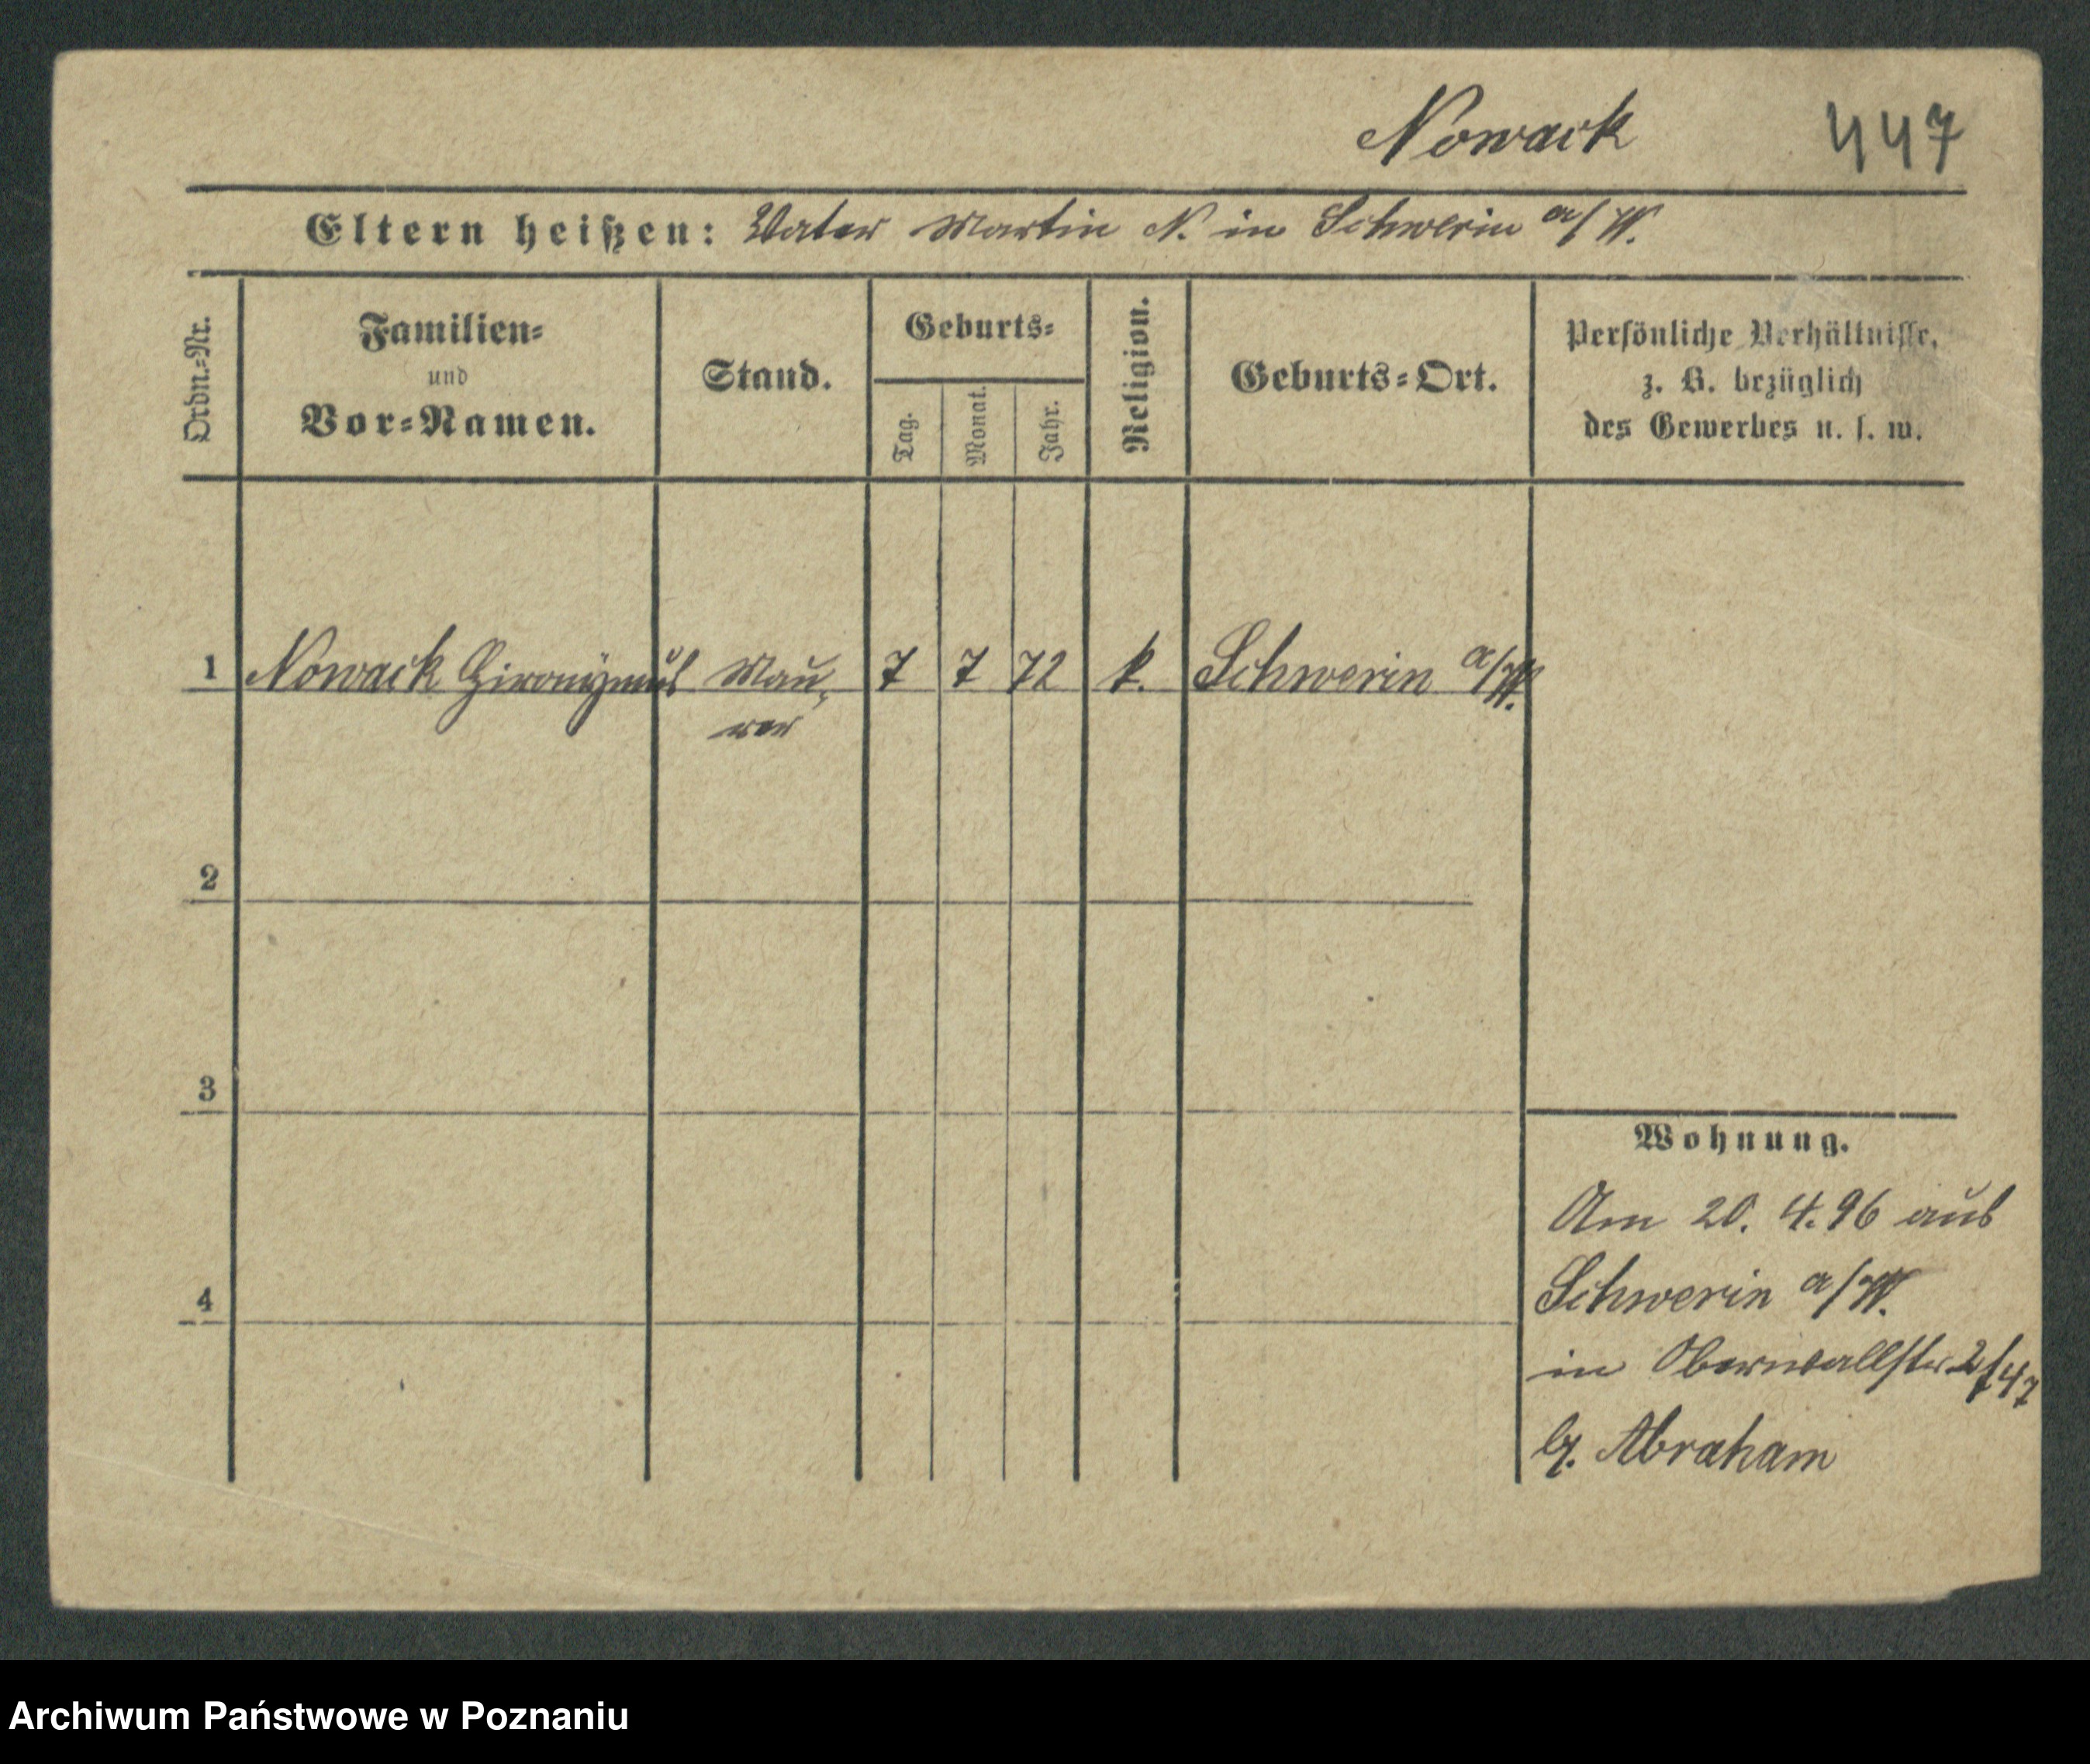 Nowack 447
Eltern heißen: Vater Martin N. in Schwerin a/W.
Ordn.-Nr. Familien- und Vor-Namen. Stand. Geburts- Tag. Monat. Jahr. Religion. Geburts-Ort. Persönliche Verhältnisse, z. B. bezüglich des Gewerbes u. s. w.
1 Nowack Hironÿmus Mau- 7 7 72 k. Schwerin a/W.
rer
2
3
Wohnung.
Am 20. 4. 96 aus
4
Schwerin a/W.
in Oberwallstr. 2/47
b. Abraham
Archiwum Państwowe w Poznaniu